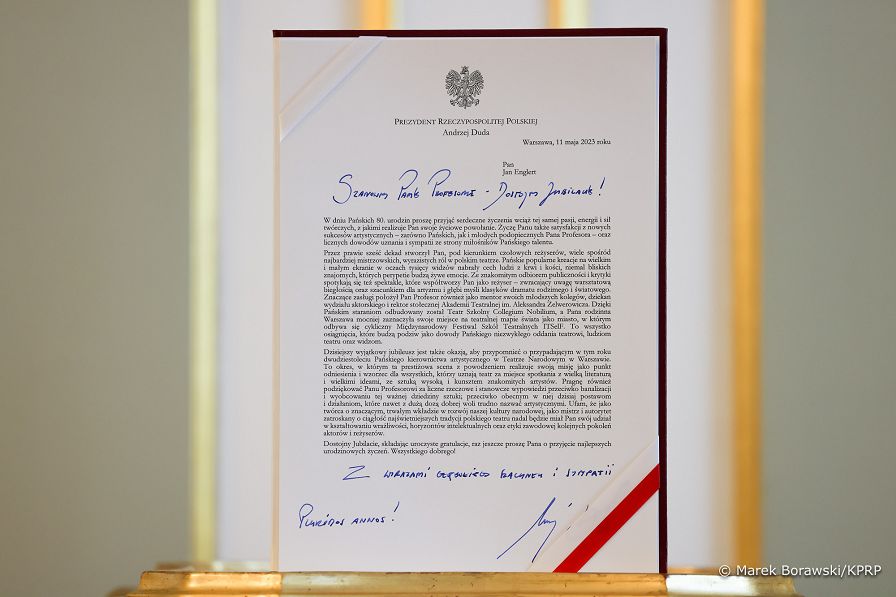 PREZYDENT RZECZYPOSPOLITEJ POLSKIEJ
Andrzej Duda
Warszawa, 11 maja 2023 roku
Pan
Jan Englert
Szanowny Panie Profesorze - Dostojny Jubilacie!
W dniu Pańskich 80. urodzin proszę przyjąć serdeczne życzenia wciąż tej samej pasji, energii i sił
twórczych, z jakimi realizuje Pan swoje życiowe powołanie. Życzę Panu także satysfakcji z nowych
sukcesów artystycznych – zarówno Pańskich, jak i młodych podopiecznych Pana Profesora – oraz
licznych dowodów uznania i sympatii ze strony miłośników Pańskiego talentu.
Przez prawie sześć dekad stworzył Pan, pod kierunkiem czołowych reżyserów, wiele spośród
najbardziej mistrzowskich, wyrazistych ról w polskim teatrze. Pańskie popularne kreacje na wielkim
i małym ekranie w oczach tysięcy widzów nabrały cech ludzi z krwi i kości, niemal bliskich
znajomych, których perypetie budzą żywe emocje. Ze znakomitym odbiorem publiczności i krytyki
spotykają się też spektakle, które współtworzy Pan jako reżyser – zwracający uwagę warsztatową
biegłością oraz szacunkiem dla artyzmu i głębi myśli klasyków dramatu rodzimego i światowego.
Znaczące zasługi położył Pan Profesor również jako mentor swoich młodszych kolegów, dziekan
wydziału aktorskiego i rektor stołecznej Akademii Teatralnej im. Aleksandra Zelwerowicza. Dzięki
Pańskim staraniom odbudowany został Teatr Szkolny Collegium Nobilium, a Pana rodzinna
Warszawa mocniej zaznaczyła swoje miejsce na teatralnej mapie świata jako miasto, w którym
odbywa się cykliczny Międzynarodowy Festiwal Szkół Teatralnych ITSelF. To wszystko
osiągnięcia, które budzą podziw jako dowody Pańskiego niezwykłego oddania teatrowi, ludziom
teatru oraz widzom.
Dzisiejszy wyjątkowy jubileusz jest także okazją, aby przypomnieć o przypadającym w tym roku
dwudziestoleciu Pańskiego kierownictwa artystycznego w Teatrze Narodowym w Warszawie.
To okres, w którym ta prestiżowa scena z powodzeniem realizuje swoją misję jako punkt
odniesienia i wzorzec dla wszystkich, którzy uznają teatr za miejsce spotkania z wielką literaturą
i wielkimi ideami, ze sztuką wysoką i kunsztem znakomitych artystów. Pragnę również
podziękować Panu Profesorowi za liczne rzeczowe i stanowcze wypowiedzi przeciwko banalizacji
i wyobcowaniu tej ważnej dziedziny sztuki; przeciwko obecnym w niej dzisiaj postawom
i działaniom, które nawet z dużą dozą dobrej woli trudno nazwać artystycznymi. Ufam, że jako
twórca o znaczącym, trwałym wkładzie w rozwój naszej kultury narodowej, jako mistrz i autorytet
zatroskany o ciągłość najświetniejszych tradycji polskiego teatru nadal będzie miał Pan swój udział
w kształtowaniu wrażliwości, horyzontów intelektualnych oraz etyki zawodowej kolejnych pokoleń
aktorów i reżyserów.
Dostojny Jubilacie, składając uroczyste gratulacje, raz jeszcze proszę Pana o przyjęcie najlepszych
urodzinowych życzeń. Wszystkiego dobrego!
Z wyrazami głębokiego szacunku i sympatii
Plurimos annos!
© Marek Borawski/KPRP